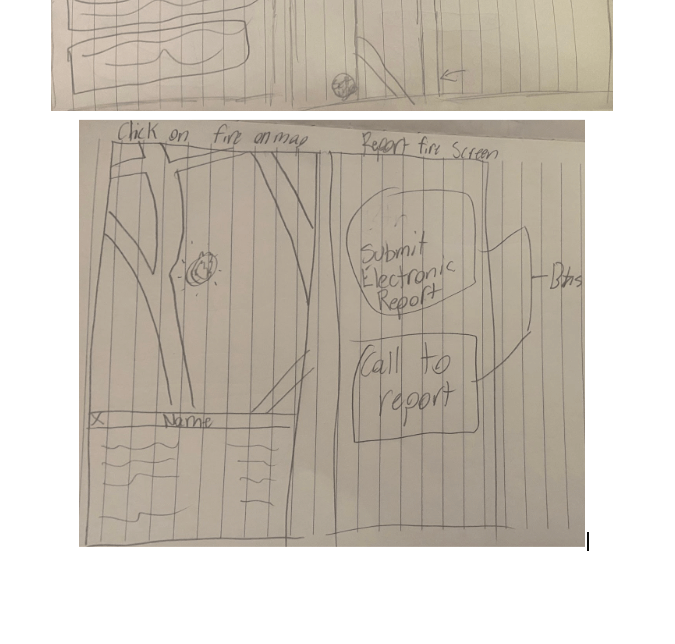 Click on fire on map
Report fire Screen
Submit
Electronic
Report
Btns
Call to
report
X Name